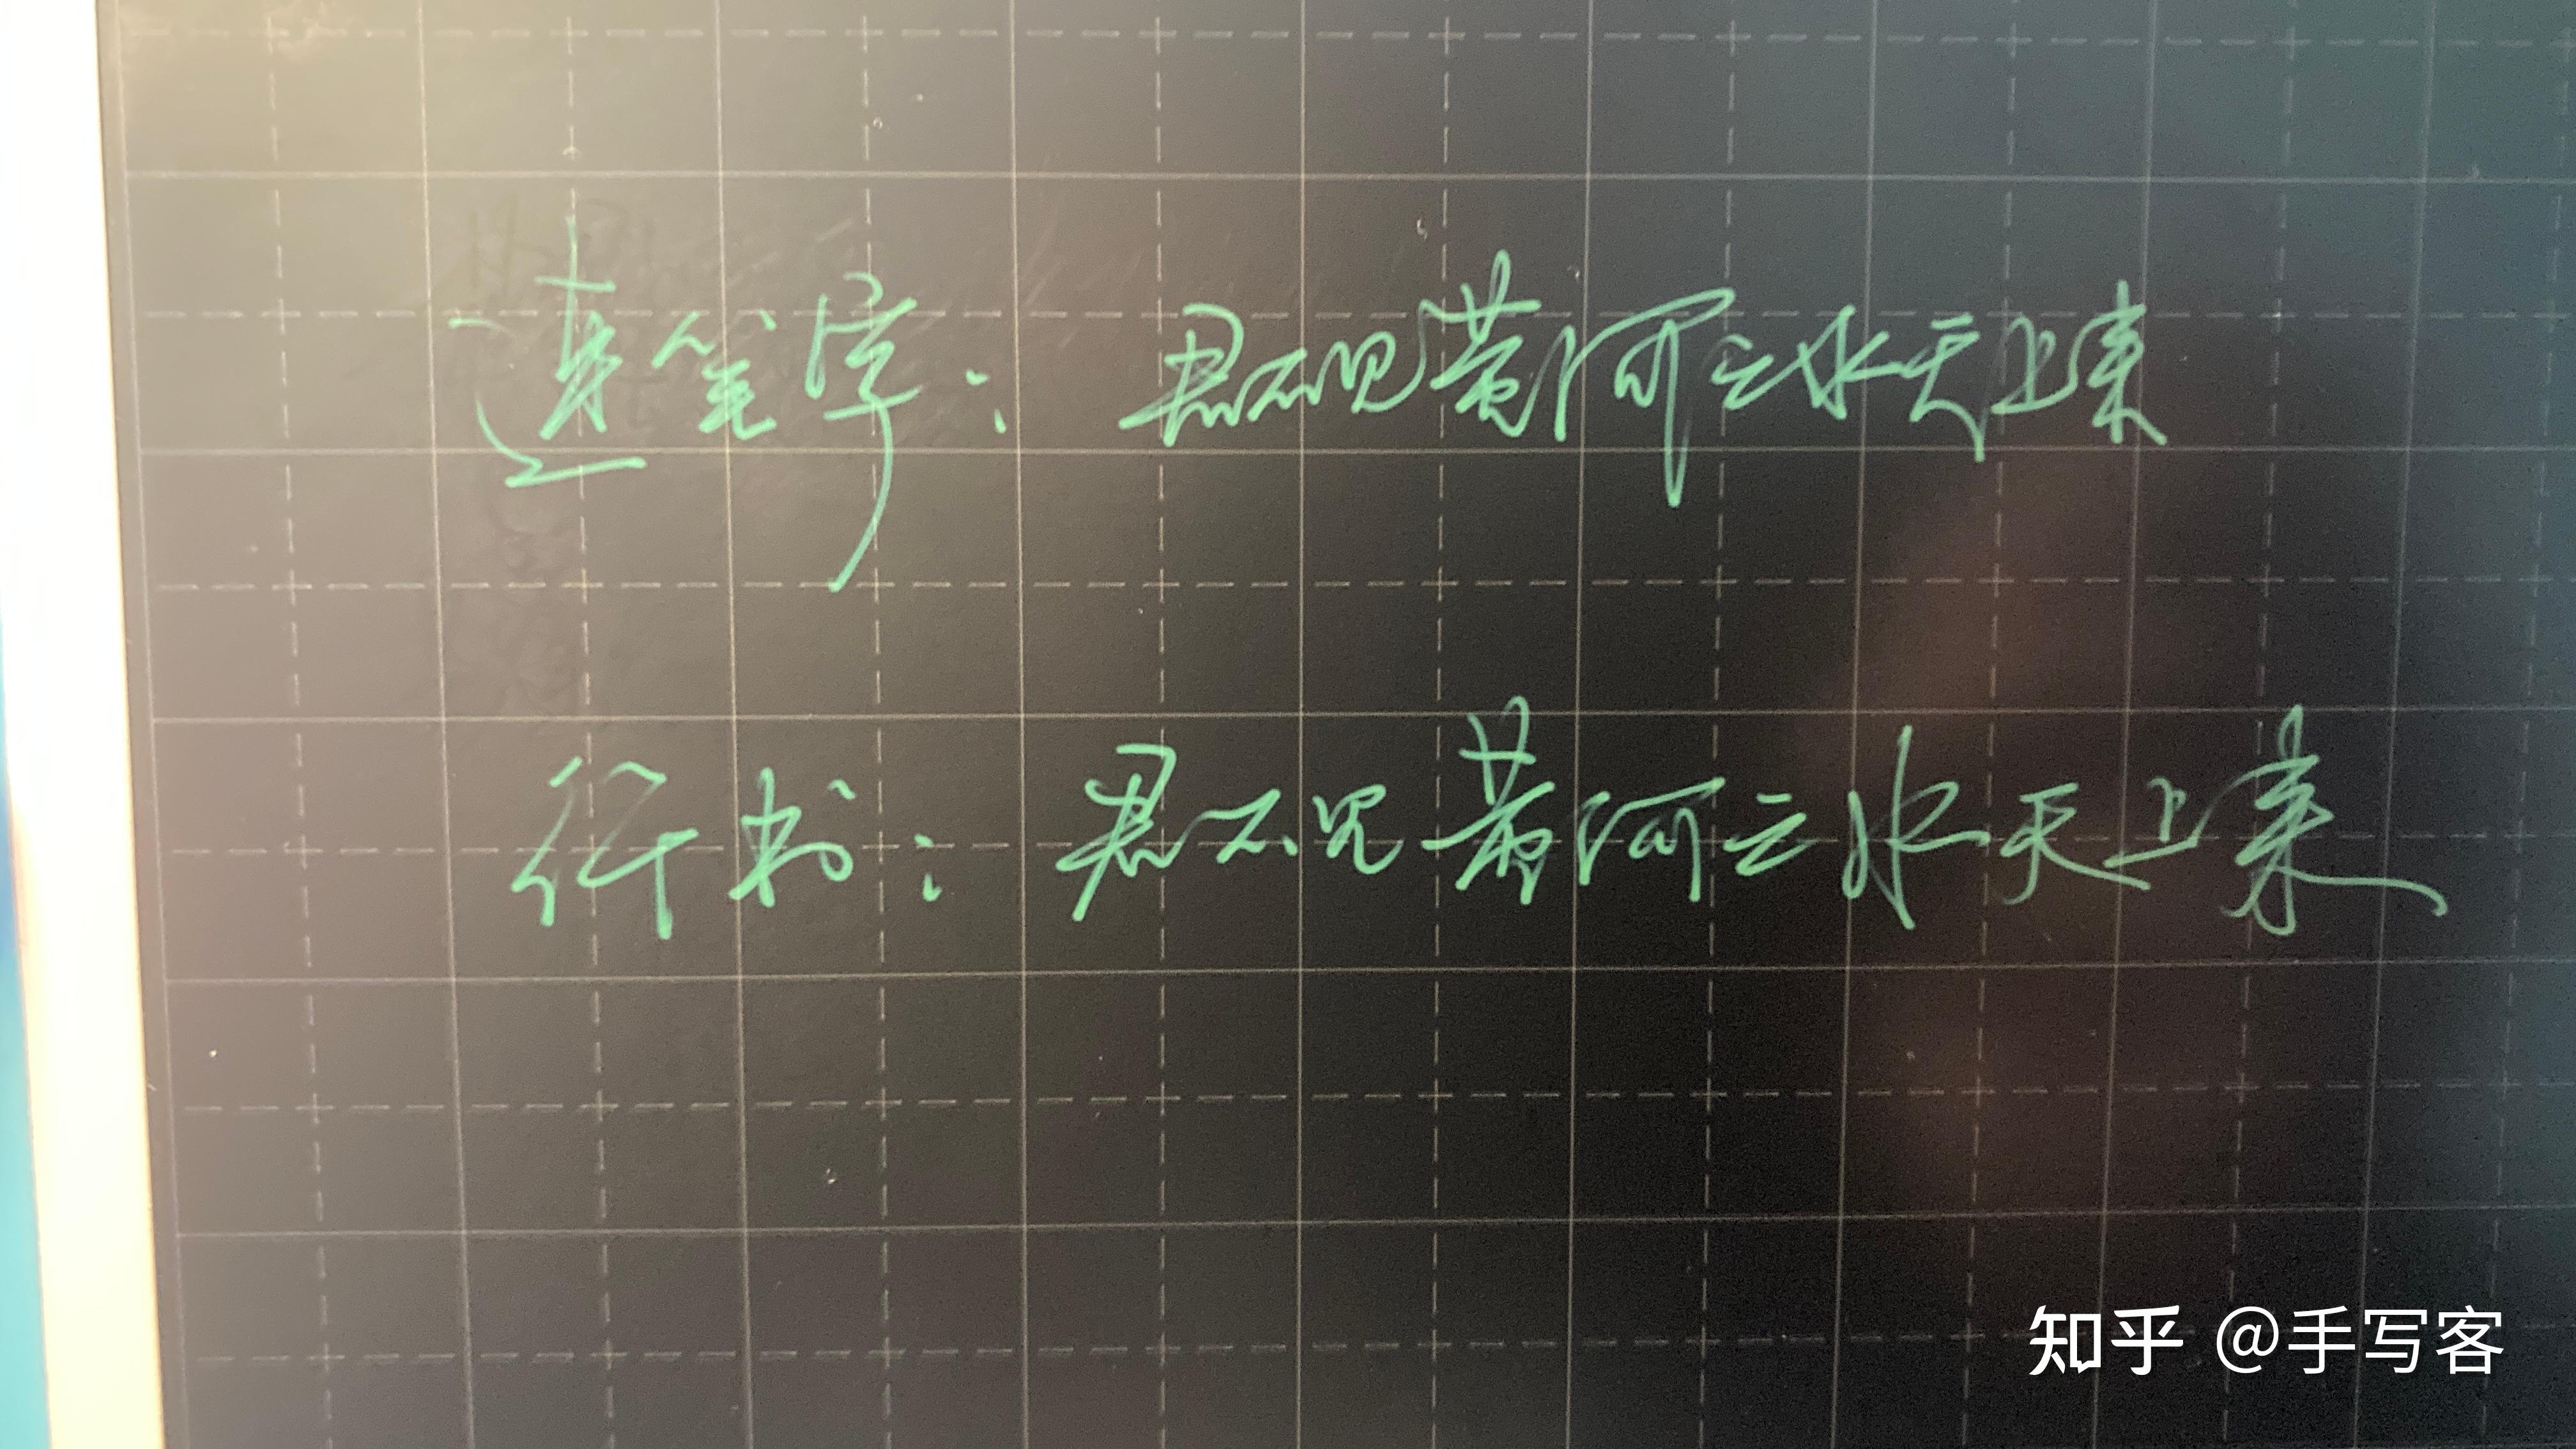 连笔字：君不见黄河之水天上来
行书：君不见黄河之水天上来
知乎 @手写客